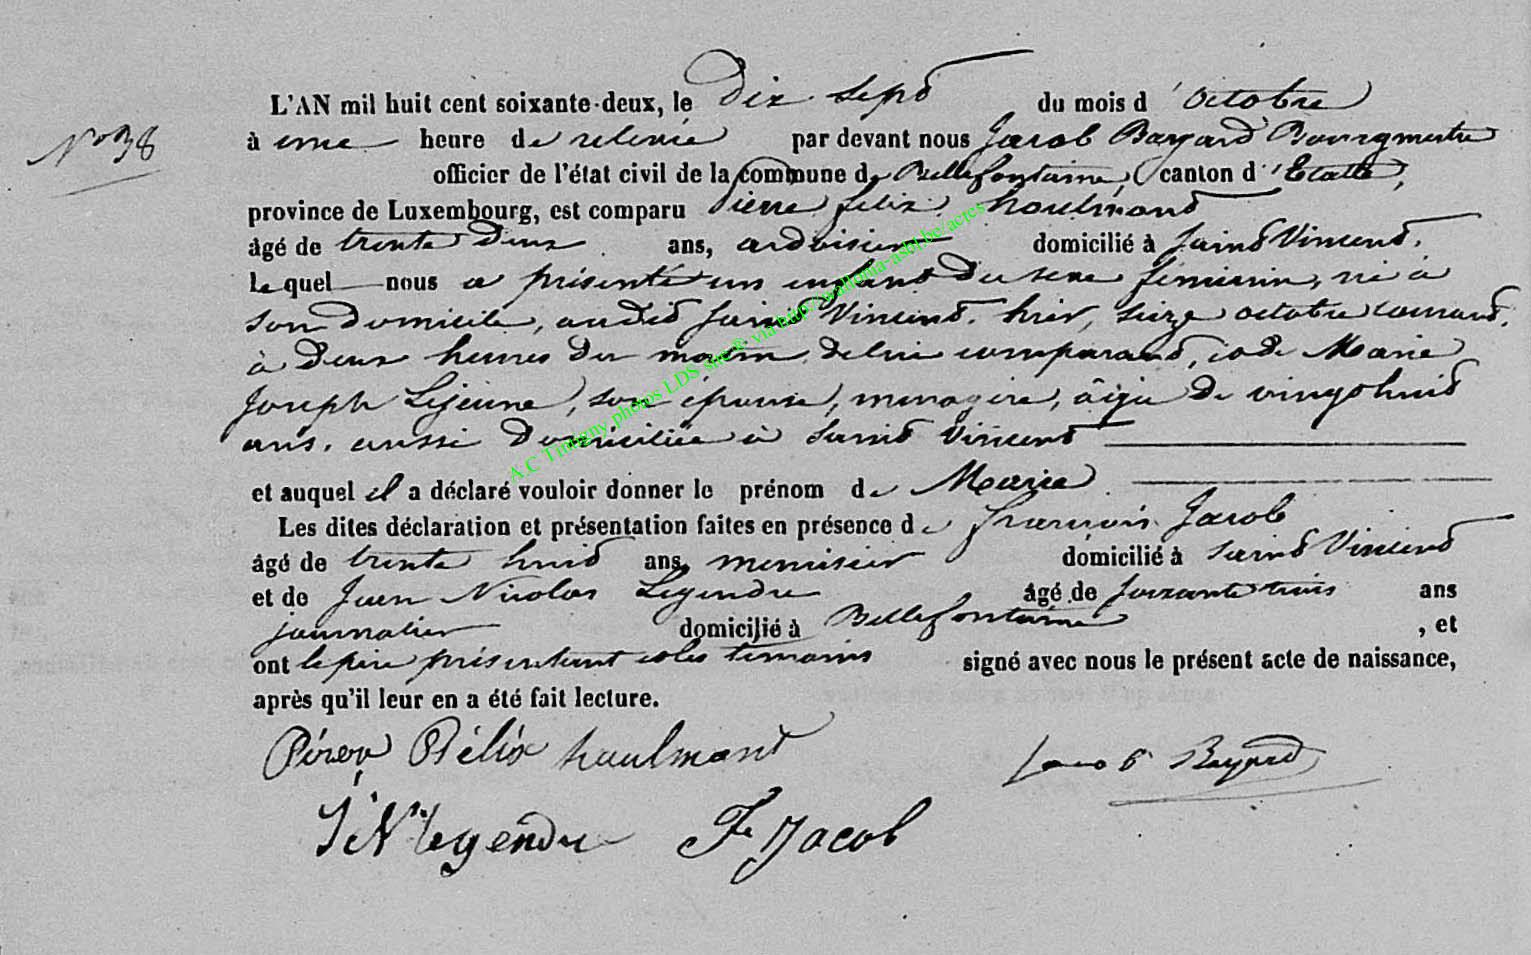 L'AN mil huit cent soixante-deux, le Dix Sept du mois d'octobre
N° 38
à une heure de relevée par devant nous Jacob Bayard Bourgmestre
officier de l'état civil de la commune de Bellefontaine, canton d'Etalle,
province de Luxembourg, est comparu Pierre felix haulmont
âgé de trente Deux ans, ardoisier domicilié à Saint Vincent,
lequel nous a présenté un enfant Du sexe féminin, né à
son Domicile, audit Saint Vincent, hier, seize octobre courant,
à Deux heures Du matin, de lui comparant, et de Marie
Joseph Lejeune, son épouse, ménagère, âgée De vingt huit
ans, aussi Domiciliée à Saint Vincent
et auquel il a déclaré vouloir donner le prénom de Marie
Les dites déclaration et présentation faites en présence de françois Jacob
âgé de trente huit ans, menuisier domicilié à Saint Vincent
et de Jean Nicolas Legendre âgé de soixante trois ans
journalier domicilié à Bellefontaine, et
ont le père présentant et les témoins signé avec nous le présent acte de naissance,
après qu'il leur en a été fait lecture.
Félix haulmont
Bayard
J N Legendre F Jacob
A.C Tintigny photos LDS site ® via http://wallonia-asbl.be/actes